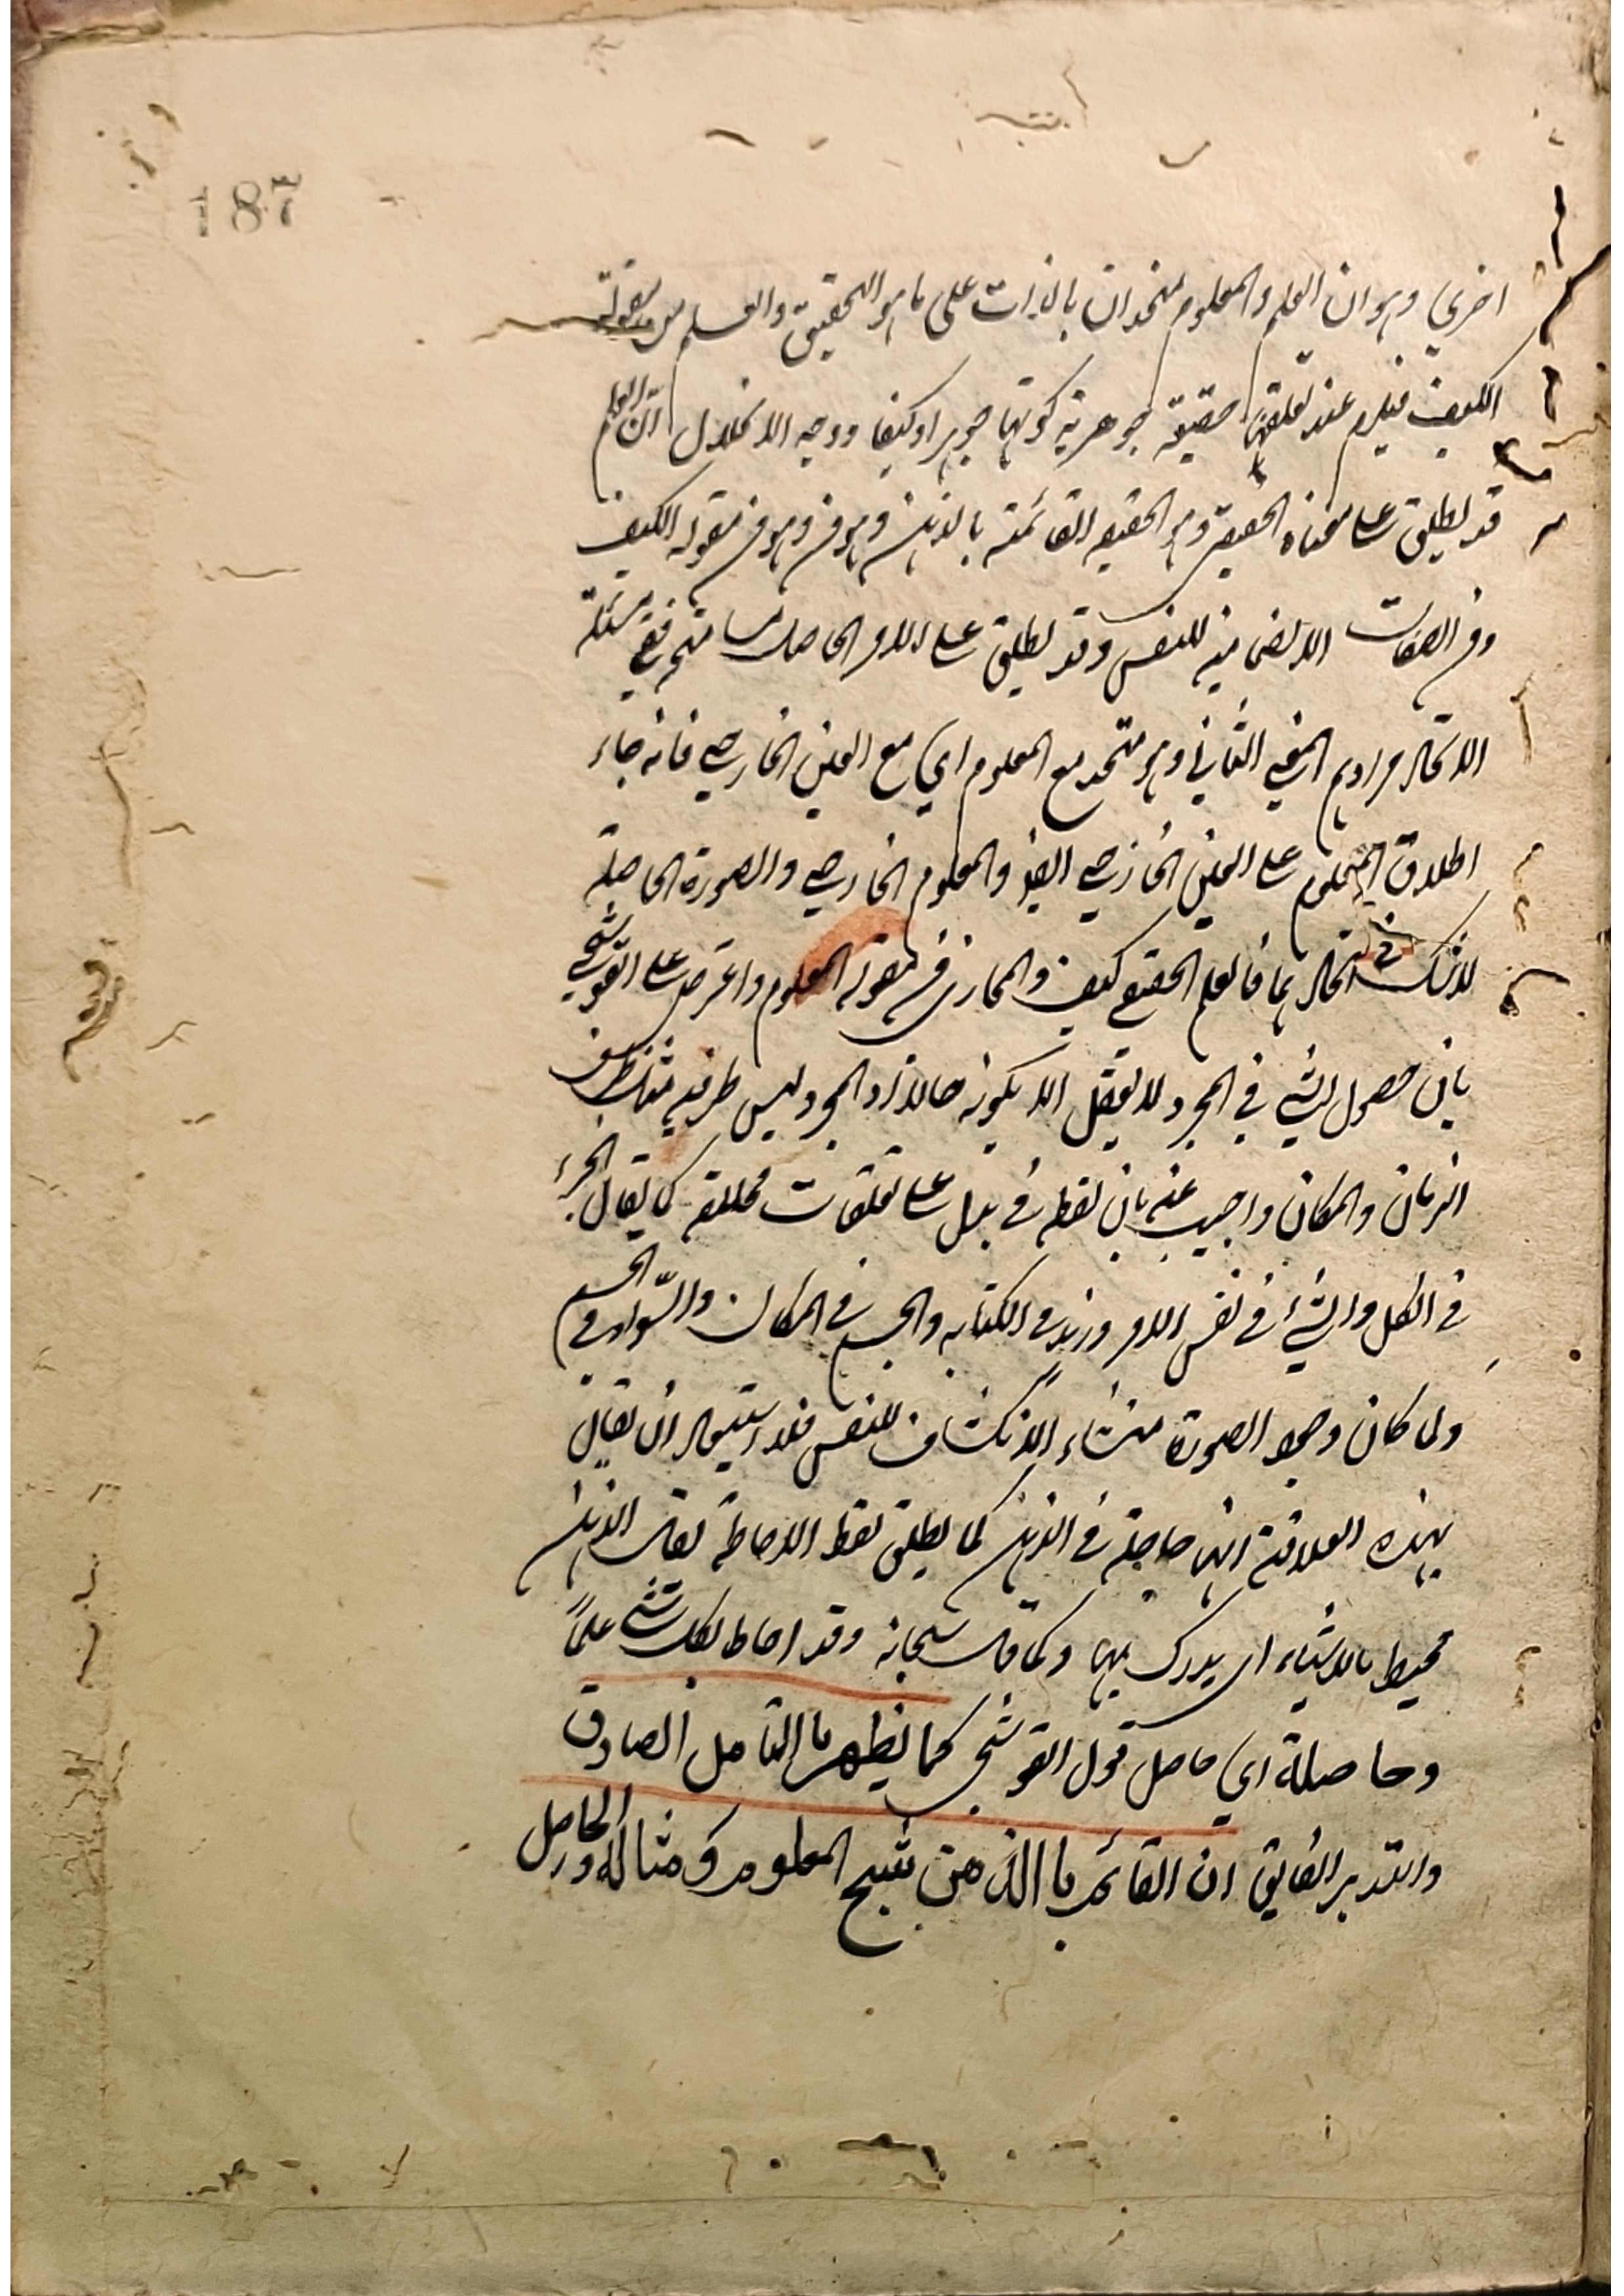 187
اخري وهو ان العلم والمعلوم متحدان بالذات على ما هو التحقيق والعلم من مقولة
الكيف فيلزم عند تعلقها حقيقة جوهرية كونها جوهرا وكيفا ووجه الانحلال ان العلم
قد يطلق على معناه الحقيقي وهو الحقيقة القائمة بالذهن وهو من وهو من مقولة الكيف
ومن الصفات الانضمامية للنفس وقد يطلق على الامر الحاصل ففي مسئلة
الاتحاد مرادهم المعنى الثاني وهو متحد مع المعلوم اي مع العين الخارجي فانه جاء
اطلاق المعلوم على العين الخارجي ايضا والمعلوم الخارجي والصورة الحاصلة
لا شك في اتحادهما فالعلم الحقيقي كيف والمجازي من مقولة المعلوم واعترض على القوشجي
بان حصول الشيء في المجرد لا يعقل الا بكونه حالا اذ المجرد ليس ظرفيه
الزمان والمكان واجيب عنه بان لفظة في يدل على تعلقات مختلفة كما يقال الجزء
في الكل والشيء في نفس الامر وزيد في الكتابه والجسم في المكان والسواد في الجسم
ولما كان وجود الصورة منشاء الانكشاف للنفس فلا استحالة ان يقال
بهذه العلاقة انها حاصلة في الذهن كما يطلق لفظ الاحاطة يقال الذهن
محيط بالاشياء اي يدرك بها وكما قال سبحانه وقد احاط بكل شئ علماً
وحاصله اي حاصل قول القوشجي كما يظهر بالتامل الصادق
والتدبر الفايق ان القائم بالذهن شبح المعلوم ومثاله والحاصل